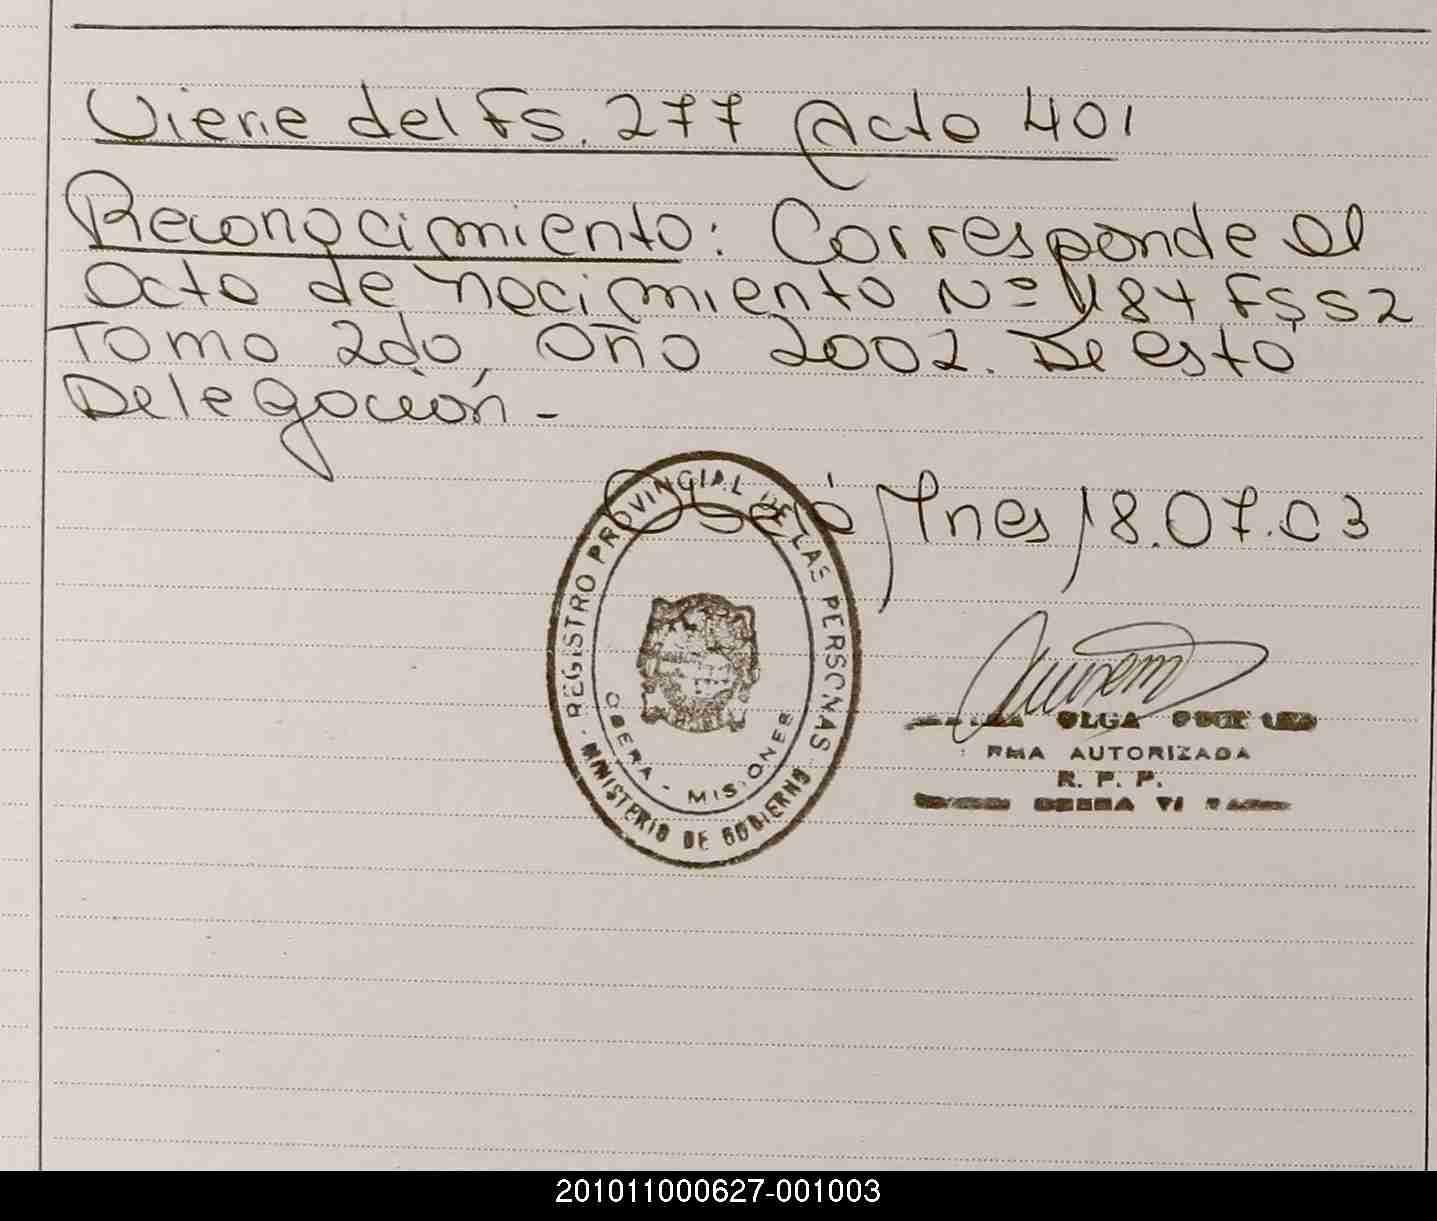 Viene del Fs. 277 Acta 401
Reconocimiento: Corresponde al
Acta de nacimiento Nº 484 Fs 52
Tomo 2do, Año 2002. De esta
Delegación -
Oberá, Mnes, 18.07.03
REGISTRO PROVINCIAL DE LAS PERSONAS
MINISTERIO DE GOBIERNO
OBERA - MISIONES
OLGA
AUTORIZADA
R. P. P.
201011000627-001003